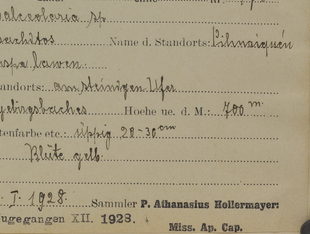 alceolaria sp
Name d. Standorts: Pihuziquén
aspa lawen
tandorts: am steinigen Ufer
Hoehe ue. d. M.: 700 m
tenfarbe etc.: üppig 28-30 cm
Blüte gelb
I. 1928. Sammler P. Athanasius Hollermayer:
ngegangen XII. 1928. Miss. Ap. Cap.